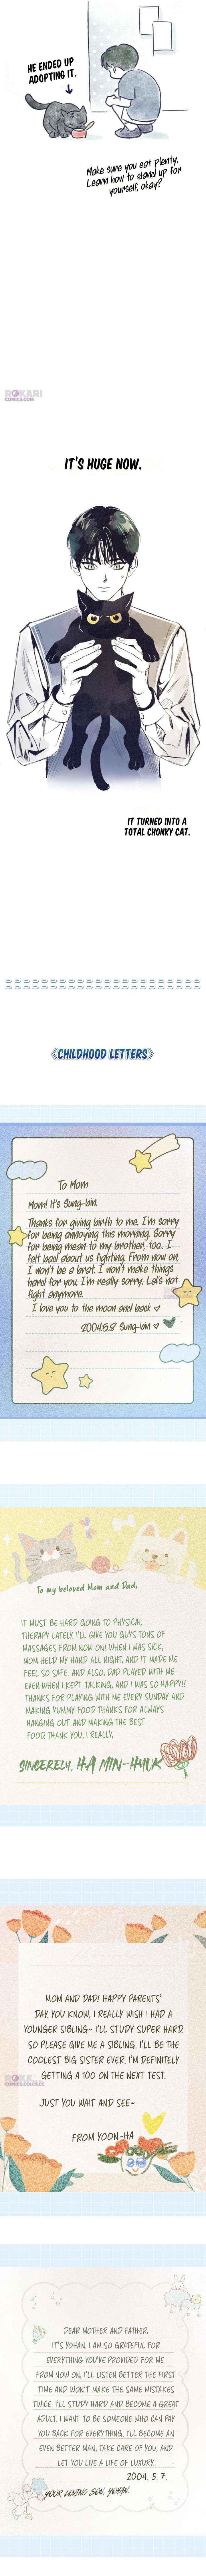 HE ENDED UP
ADOPTING IT.
Make sure you eat plenty.
Learn how to stand up for
yourself, okay?
ROKARI
COMICS.COM
IT'S HUGE NOW.
IT TURNED INTO A
TOTAL CHONKY CAT.
《CHILDHOOD LETTERS》
To Mom
Mom! It's Sung-bin.
Thanks for giving birth to me. I'm sorry
for being annoying this morning. Sorry
for being mean to my brother, too. I
felt bad about us fighting. From now on,
I won't be a brat. I won't make things
hard for you. I'm really sorry. Let's not
fight anymore.
I love you to the moon and back ♡
2004.5.8 Sung-bin ♡
To my beloved Mom and Dad,
IT MUST BE HARD GOING TO PHYSICAL
THERAPY LATELY. I'LL GIVE YOU GUYS TONS OF
MASSAGES FROM NOW ON! WHEN I WAS SICK,
MOM HELD MY HAND ALL NIGHT, AND IT MADE ME
FEEL SO SAFE. AND ALSO, DAD PLAYED WITH ME
EVEN WHEN I KEPT TALKING, AND I WAS SO HAPPY!!
THANKS FOR PLAYING WITH ME EVERY SUNDAY AND
MAKING YUMMY FOOD THANKS FOR ALWAYS
HANGING OUT AND MAKING THE BEST
FOOD. THANK YOU, I REALLY,
SINCERELY, HA MIN-HYUK
MOM AND DAD! HAPPY PARENTS'
DAY. YOU KNOW, I REALLY WISH I HAD A
YOUNGER SIBLING~ I'LL STUDY SUPER HARD.
SO PLEASE GIVE ME A SIBLING. I'LL BE THE
COOLEST BIG SISTER EVER. I'M DEFINITELY
GETTING A 100 ON THE NEXT TEST.
JUST YOU WAIT AND SEE~
FROM YOON-HA
DEAR MOTHER AND FATHER,
IT'S YOHAN. I AM SO GRATEFUL FOR
EVERYTHING YOU'VE PROVIDED FOR ME.
FROM NOW ON, I'LL LISTEN BETTER THE FIRST
TIME AND WON'T MAKE THE SAME MISTAKES
TWICE. I'LL STUDY HARD AND BECOME A GREAT
ADULT. I WANT TO BE SOMEONE WHO CAN PAY
YOU BACK FOR EVERYTHING. I'LL BECOME AN
EVEN BETTER MAN, TAKE CARE OF YOU, AND
LET YOU LIVE A LIFE OF LUXURY.
2004. 5. 7.
YOUR LOVING SON, YOHAN.